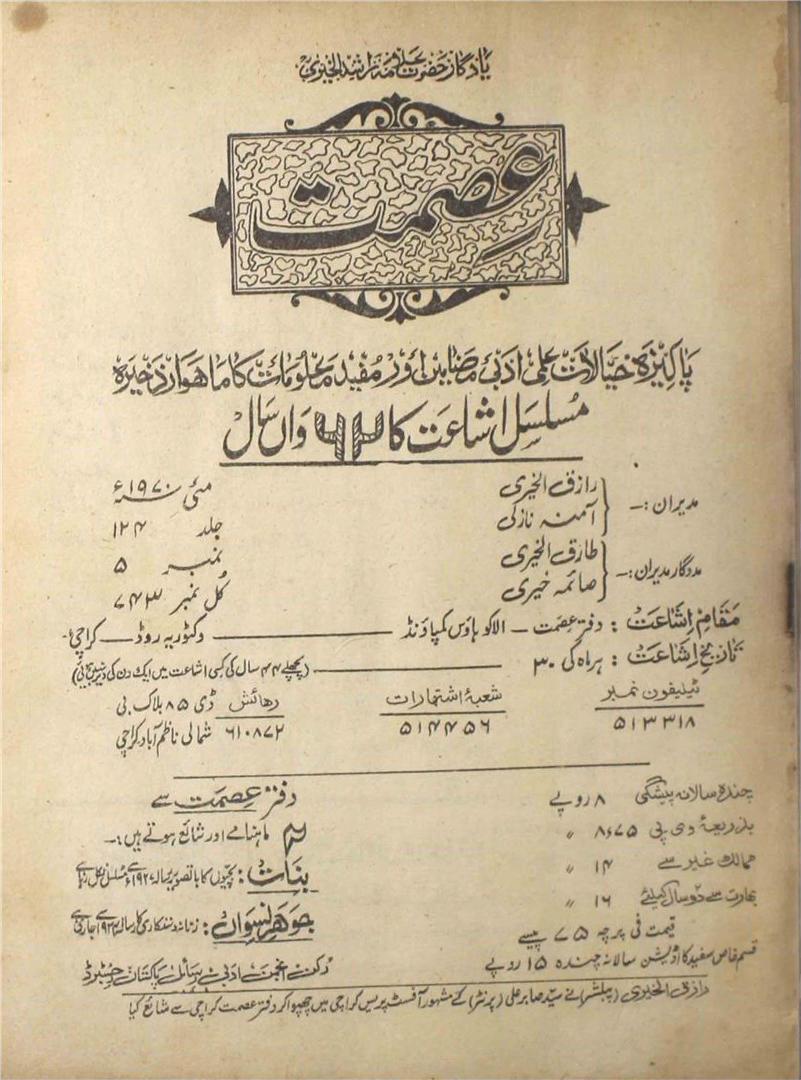 یادگار حضرت علامہ راشد الخیریؒ
عصمت
پاکیزہ خیالات علمی ادبی مضامین اور مفید معلومات کا ماہوار ذخیرہ
مسلسل اشاعت کا ۶۲ واں سال
مدیران :— رازق الخیری مئی ۱۹۷۰ء
آمنہ نازلی جلد ۱۲۴
مددگار مدیران :— طارق الخیری نمبر ۵
صائمہ خیری کل نمبر ۷۴۳
مقام اشاعت : دفتر عصمت — الاکو ہاؤس کمپاؤنڈ — وکٹوریہ روڈ — کراچی
تاریخ اشاعت : ہر ماہ کی ۳۰ — (پچھلے ۴۴ سال کی کسی اشاعت میں ایک دن کی دیر نہیں ہوئی)
ٹیلیفون نمبر شعبۂ اشتہارات رہائش ڈی ۸۵ بلاک بی
۵۱۳۳۱۸ ۵۱۴۴۵۶ ۶۱۰۸۷۲ شمالی ناظم آباد کراچی
چندہ سالانہ پیشگی ۸ روپے
بذریعۂ وی پی ۸٫۷۵ 〃
ممالک غیر سے ۱۴ 〃
بھارت سے دو سال کیلئے ۱۶ 〃
قیمت فی پرچہ ۷۵ پیسے
قسم خاص سفید کا اڈیشن سالانہ چندہ ۱۵ روپے
دفتر عصمت سے
۲ ماہنامے اور شائع ہوتے ہیں :—
بنات : بچیوں کا باتصویر رسالہ ۱۹۲۷ء سے مسلسل نکل رہا ہے
جوہر نسواں : زنانہ دستکاری کا رسالہ ۱۹۳۴ء سے جاری ہے
رکن : انجمن ادبی رسائل پاکستان رجسٹرڈ
رازق الخیری (پبلشر) نے سید صابر علی (پرنٹر) کے مشہور آفسٹ پریس کراچی میں چھپوا کر دفتر عصمت کراچی سے شائع کیا